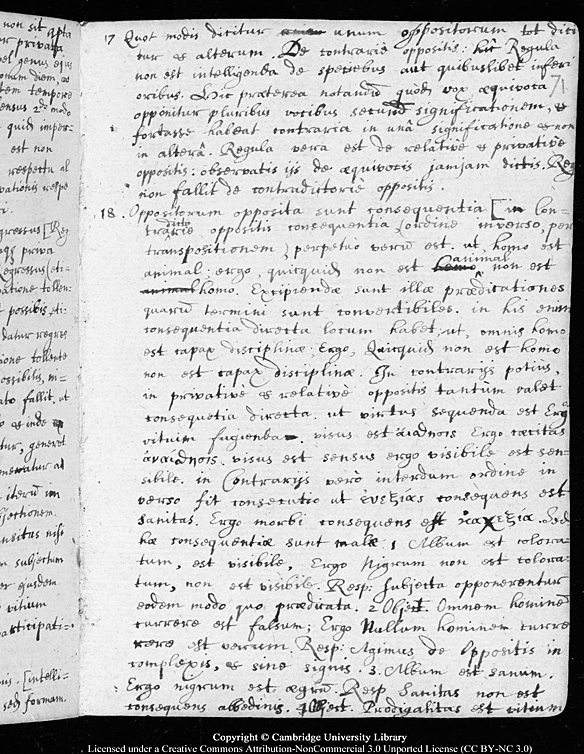 non sit apta
or privata
vel genus ejus
tem tempore
ensus 2do modo
quid imper-
est non
respectu al
vationis respe
priva
Regressus, eti-
vatione tollen-
t possibis, eti-
datur regres
ione tollente
ossibilis, in-
ato fallit, ut
tur, generet
iterū im
bjectionem.
nsitus nisi
n subjectum
er ejusdem
vitium
participati-
nis. [intelli-
sed formam.
17 Quot modis dicitur unum oppositorum tot dici
tur & alterum. De contrariè oppositis: hîc Regula
non est intelligenda de speciebus aut quibuslibet inferi
oribus. Hic præterea notandū quòd vox æquivoca 71
opponitur pluribus vocibus secund significationem, &
fortasse habeat contraria in unâ significatione & non
in alterâ. Regula vera est de relativè & privativè
oppositis: observatis ijs de æquivocis jamjam dictis. Reg
non fallit de contradictoriè oppositis.
18. Oppositorum opposita sunt consequentia [in Con-
tradictoriè oppositis consequentia (ordine inverso, per
transpositionem) perpetuo verū est. ut, homo est
animal: ergo, quicquid non est homo animal non est
animal homo. Excipiendæ sunt illæ prædicationes
quarū termini sunt convertibiles. in his enim
consequentia directa locum habet, ut, omnis homo
est capax disciplinæ; Ergo, Quicquid non est homo
non est capax disciplinæ. In contrarijs potiùs,
in privativè & relativè oppositis tantùm valet
consequetia directa. ut virtus sequenda est Ergo
vitium fugienda. visus est αἴσθησις Ergo cæcitas
ἀναισθησις. visus est sensus ergo visibile est sen-
sibile. in Contrarijs verò interdum ordine in
verso fit consecutio ut ἐυεξίας consequens est
sanitas. Ergo morbi consequens est καχεξία. Sed
hæ consequentiæ sunt malæ. 1 Album est colora
tum, est visibile, Ergo Nigrum non est colora-
tum, non est visibile. Resp: Subjecta opponerentur
eodem modo quo prædicata. 2 Object. Omnem hominē
currere est falsum; Ergo Nullum hominem curre
rere est verum. Resp: Agimus de Oppositis in
complexis, & sine signis. 3. Album est sanum.
Ergo nigrum est ægrū. Resp Sanitas non est
consequens albedinis. 4 Object. Prodigalitas est vitium
Copyright © Cambridge University Library
Licensed under a Creative Commons Attribution-NonCommercial 3.0 Unported License (CC BY-NC 3.0)